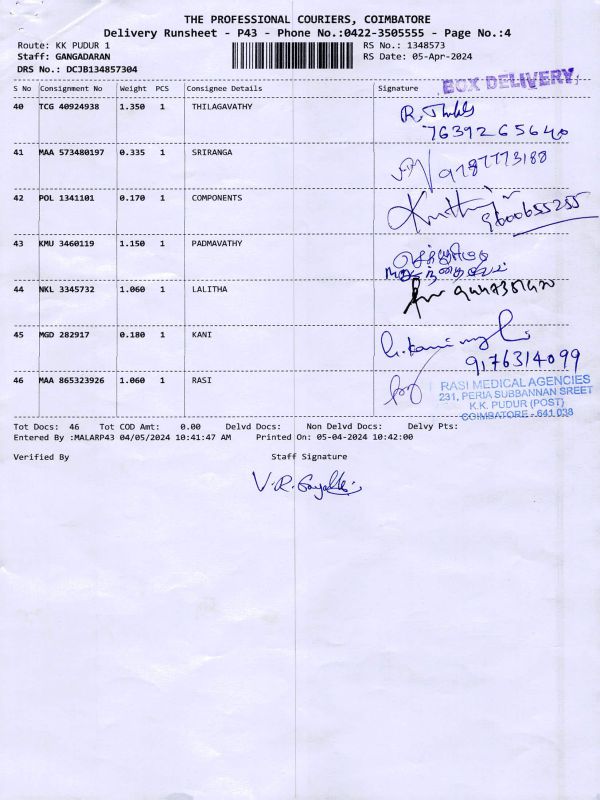 THE PROFESSIONAL COURIERS, COIMBATORE
Delivery Runsheet - P43 - Phone No.:0422-3505555 - Page No.:4
Route: KK PUDUR 1 RS No.: 1348573
Staff: GANGADARAN RS Date: 05-Apr-2024
DRS No.: DCJB134857304
BOX DELIVERY
S No Consignment No Weight PCS Consignee Details Signature
40 TCG 40924938 1.350 1 THILAGAVATHY
7639265640
41 MAA 573480197 0.335 1 SRIRANGA 9787773188
42 POL 1341101 0.170 1 COMPONENTS 9600655255
43 KMU 3460119 1.150 1 PADMAVATHY
44 NKL 3345732 1.060 1 LALITHA
45 MGD 282917 0.180 1 KANI
9176314099
46 MAA 865323926 1.060 1 RASI
RASI MEDICAL AGENCIES
231, PERIA SUBBANNAN SREET
K.K. PUDUR (POST)
COIMBATORE - 641 038
Tot Docs: 46 Tot COD Amt: 0.00 Delvd Docs: Non Delvd Docs: Delvy Pts:
Entered By :MALARP43 04/05/2024 10:41:47 AM Printed On: 05-04-2024 10:42:00
Verified By Staff Signature